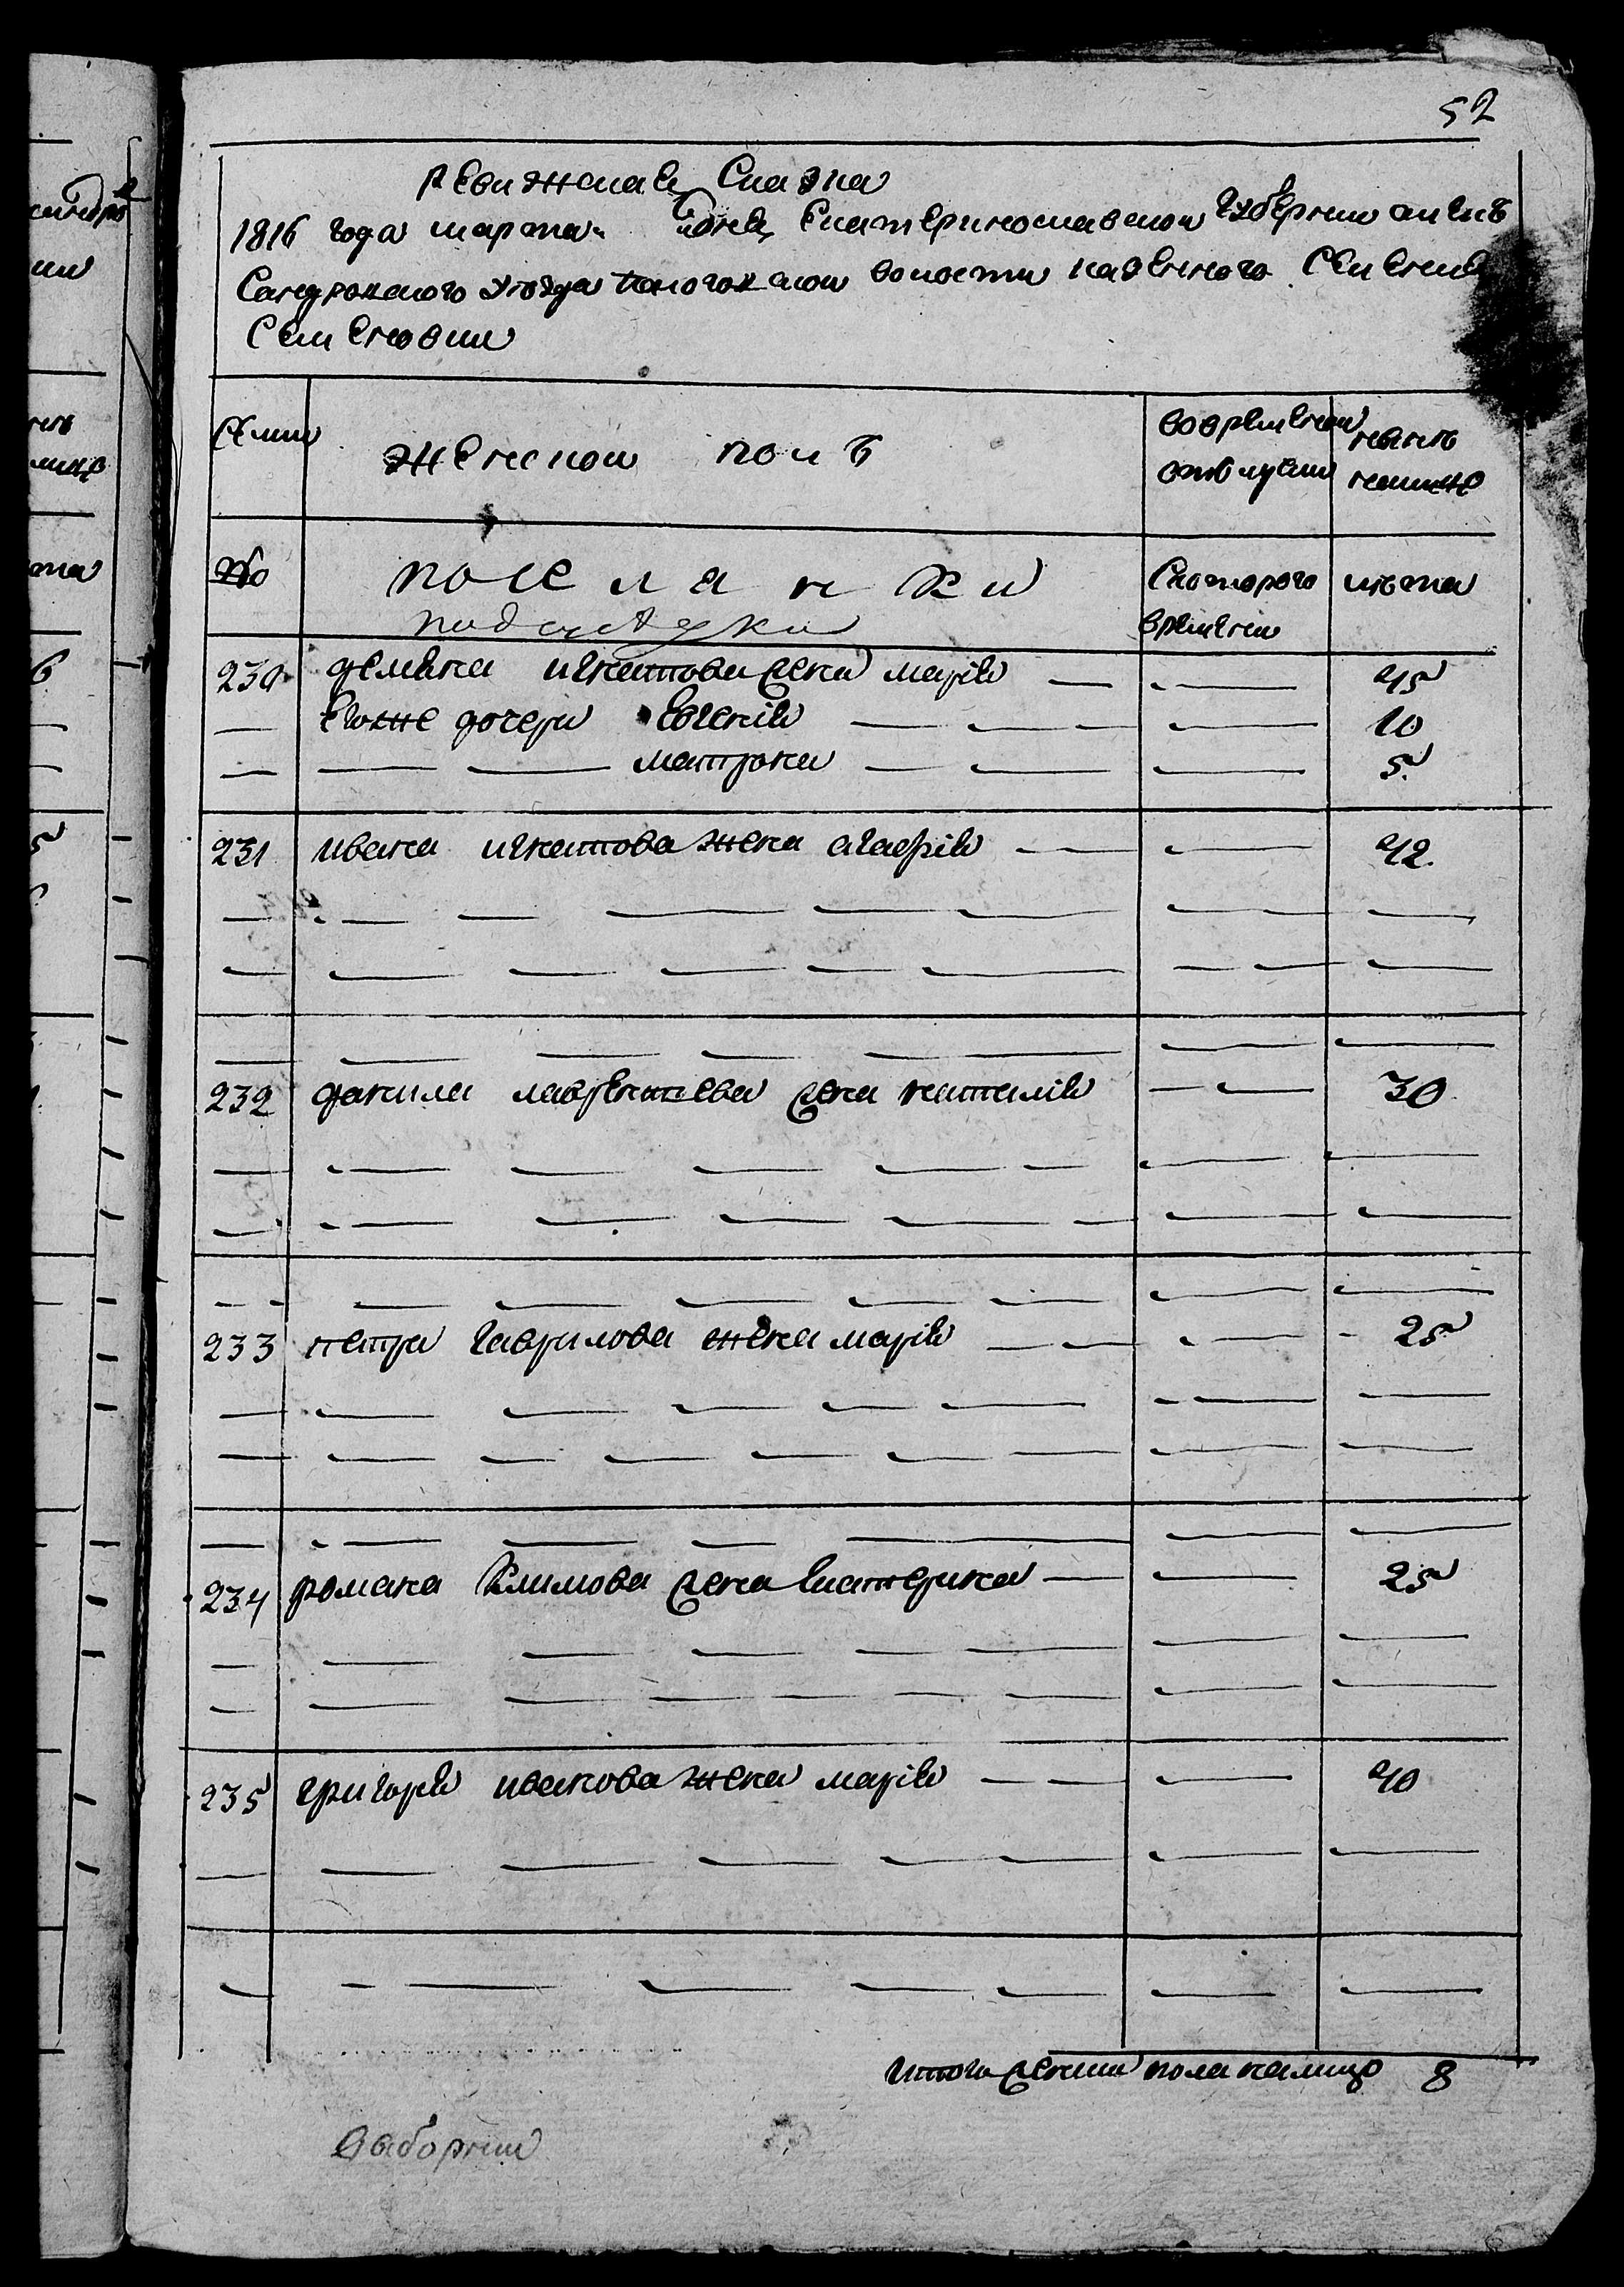 52
ревижская Сказка
1816 года марта дня, Екатеринославской Губернии алек
Сандровского уезда Пологовской волости казенного Селения
Семеновки
Семии женской полъ вовременой отлучки нынъ налицо
№ поселянки Скоторого времени лъта
подсуседки
230 демяна игнатова жена марія — — 45
— Егоже дочери Евгенія — — — — 10
— — — матрона — — — 5
231 ивана игнатова жена агафія — — — 42.
232 данила лаврентева жена наталія — — 30
233 петра гаврилова жена марія — — — - 25
234 романа климова жена Екатерина — — 25
235 григоря иванова жена марія — — — 40
итого женска пола налицо 8
выборний